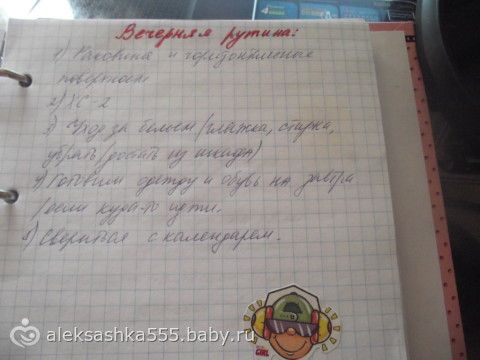 Вечерняя рутина:
1) Раковина и горизонтальные
поверхности
2) ХС-2
3) Уход за бельем (глажка, стирка,
убрать/достать из шкафа)
4) Готовим одежду и обувь на завтра
/если куда-то идти.
5) Свериться с календарем.
GIRL
aleksashka555.baby.ru